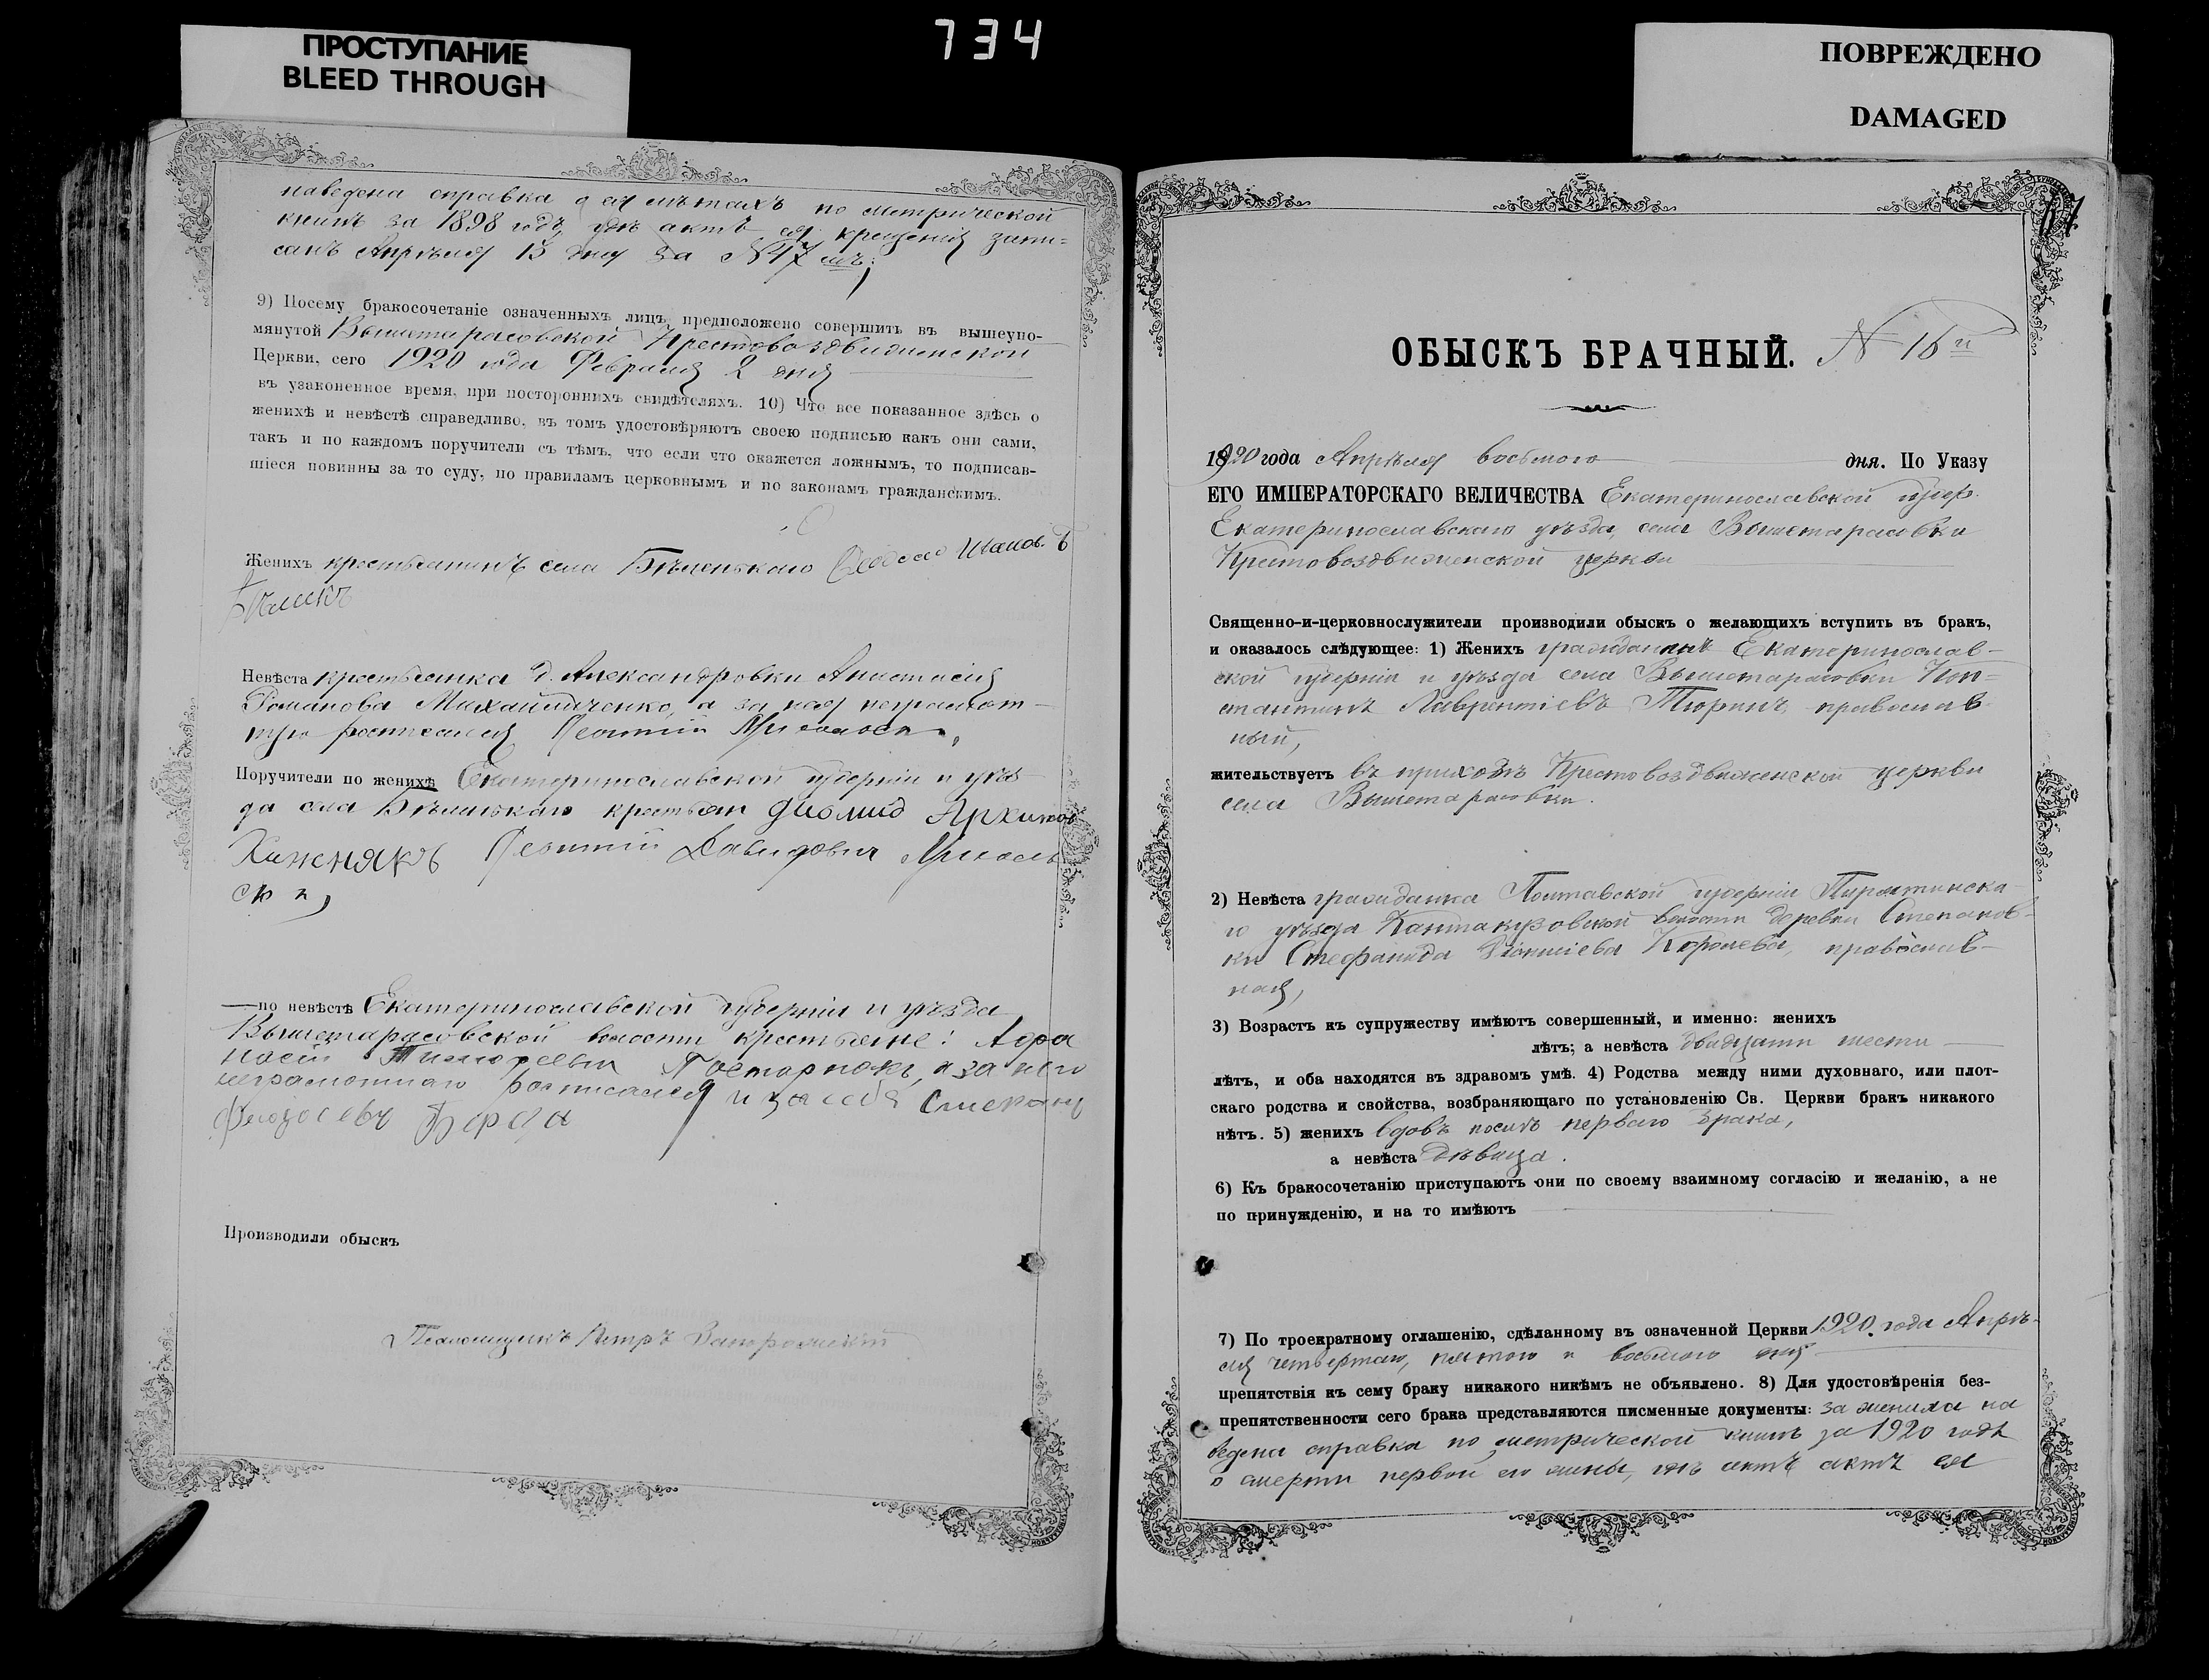 ПРОСТУПАНИЕ
BLEED THROUGH
734
ПОВРЕЖДЕНО
DAMAGED
наведена справка о ея лѣтахъ по метрической
книгѣ за 1898 годъ, гдѣ актъ ея крещенія запи=
санъ Апрѣля 13 дня за № 47 мъ;
9) Посему бракосочетаніе означенныхъ лицъ предположено совершить въ вышеупо-
мянутой Вышетарасовской Крестовоздвиженской
Церкви, сего 1920 года Февраля 2 дня
въ узаконенное время, при постороннихъ свидѣтеляхъ. 10) Что все показанное здѣсь о
женихѣ и невѣстѣ справедливо, въ томъ удостовѣряютъ своею подписью какъ они сами,
такъ и по каждомъ поручители съ тѣмъ, что если что окажется ложнымъ, то подписав-
шіеся повинны за то суду, по правиламъ церковнымъ и по законамъ гражданскимъ.
Женихъ крестьянинъ села Бѣленькаго
Невѣста крестьянка д. Александровки Анастасія
Романова Михайличенко, а за нея неграмот-
ную росписался Леонтій
Поручители по женихѣ Екатеринославской губерніи и уѣз
да села Бѣленькаго крестьян Диомид Архипов
Хижнякъ Леонтій Давидович
по невѣстѣ Екатеринославской губерніи и уѣзда
Вышетарасовской волости крестьяне: Афа
насій Тимофеевъ а за него
неграмотнаго росписался и за себя Степанъ
Феодосіевъ
Производили обыскъ
Псаломщикъ Петръ Запорожскій
ОБЫСКЪ БРАЧНЫЙ. № 16 й
1920 года Апрѣля восьмого дня. По Указу
ЕГО ИМПЕРАТОРСКАГО ВЕЛИЧЕСТВА Екатеринославской губер.
Екатеринославскаго уѣзда, села Вышетарасовки
Крестовоздвиженской церкви
Священно-и-церковнослужители производили обыскъ о желающихъ вступить въ бракъ,
и оказалось слѣдующее: 1) Женихъ гражданинъ Екатеринослав-
ской губерніи и уѣзда села Вышетарасовки Кон=
стантинъ Лаврентіевъ Тюринъ, православ-
ный,
жительствуетъ въ приходѣ Крестовоздвиженской церкви
села Вышетарасовки.
2) Невѣста гражданка Полтавской губерніи Пирятинска-
го уѣзда Кантакузовской волости деревни Степанов-
ки Стефанида Діонисіева Королева, православ-
ная,
3) Возрастъ къ супружеству имѣютъ совершенный, и именно: женихъ
лѣтъ; а невѣста двадцати шести
лѣтъ, и оба находятся въ здравомъ умѣ. 4) Родства между ними духовнаго, или плот-
скаго родства и свойства, возбраняющаго по установленію Св. Церкви бракъ никакого
нѣтъ. 5) женихъ вдовъ послѣ перваго брака,
а невѣста дѣвица.
6) Къ бракосочетанію приступаютъ они по своему взаимному согласію и желанію, а не
по принужденію, и на то имѣютъ
7) По троекратному оглашенію, сдѣланному въ означенной Церкви 1920 года Апрѣ-
ля четвертаго, пятого и восьмого дня
препятствія къ сему браку никакого никѣмъ не объявлено. 8) Для удостовѣренія без-
препятственности сего брака представляются писменные документы: за жениха на
ведена справка по метрической книгѣ за 1920 годъ
о смерти первой его жены, гдѣ актъ актъ ея